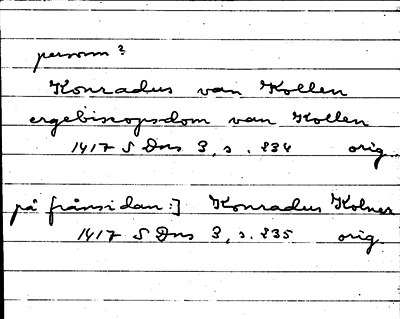 person?
Konradus van Kollen
ergebiscopsdom van Kollen
1417 S Dns 3, s. 234 orig.
på frånsidan:] Konradus Kolner
1417 S Dns 3, s. 235 orig.